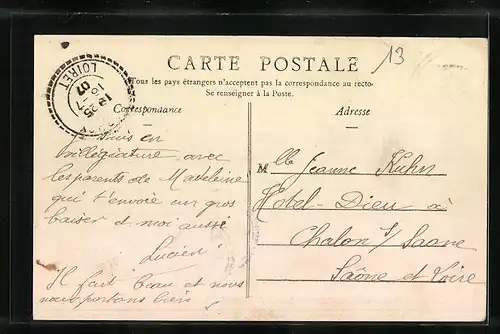 CARTE POSTALE
13
Tous les pays étrangers n'acceptent pas la correspondance au recto-
Se renseigner à la Poste.
LOIRET
07
Correspondance
Suis en
villégiature avec
les parents de Madeleine
qui t'envoie un gros
baiser et moi aussi
Lucien
Il fait beau et nous
nous portons bien
Adresse
Mlle Jeanne Kuhn
Hotel-Dieu à
Chalon s/ Saone
Saône et Loire